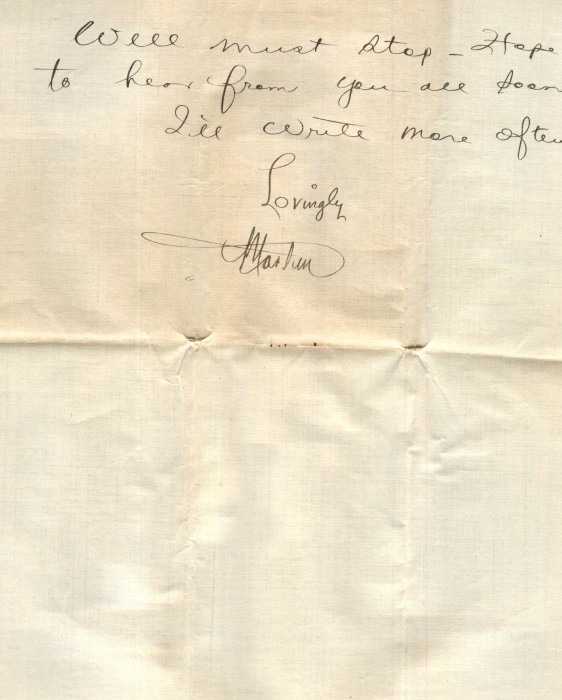 Well must stop - Hope
to hear from you all soon
I'll write more often
Lovingly